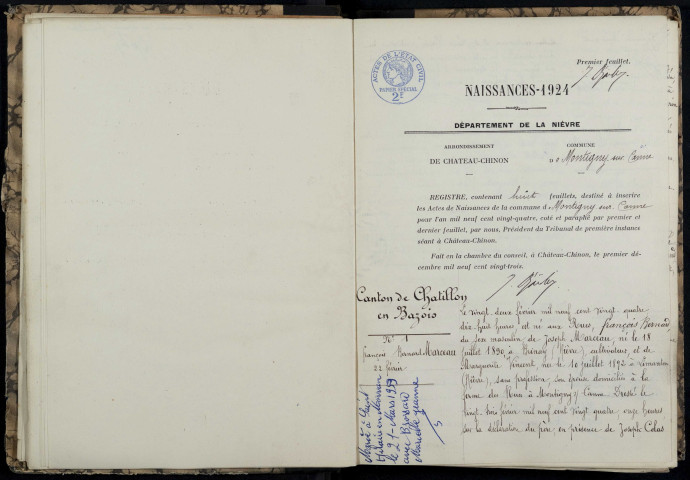 Premier feuillet.
ACTES DE L'ÉTAT CIVIL
PAPIER SPÉCIAL
2F
NAISSANCES-1924
DÉPARTEMENT DE LA NIÈVRE
ARRONDISSEMENT
DE CHATEAU-CHINON
COMMUNE
De Montigny sur Canne
REGISTRE, contenant huit feuillets, destiné à inscrire
les Actes de Naissances de la commune de Montigny sur Canne
pour l'an mil neuf cent vingt-quatre, coté et paraphé par premier et
dernier feuillet, par nous, Président du Tribunal de première instance
séant à Château-Chinon.
Fait en la chambre du conseil, à Château-Chinon, le premier dé-
cembre mil neuf cent vingt-trois.
Canton de Chatillon
en Bazois
No 1
François Bernard Marceau
22 février
Marié à Saint
Hilaire en Morvan
le 21 Mars 19
avec Brossard
Marcelle Jeanne
Le vingt deux février mil neuf cent vingt quatre
dix huit heures est né aux Rues, François Bernard
du sexe masculin de Joseph Marceau, né le 18
juillet 1890 à (Nièvre), cultivateur, et de
Marguerite Vincent, née le 10 juillet 1892 à
(Nièvre), sans profession, son épouse domiciliés à la
ferme des Rues à Montigny s/ Canne Dressé le
vingt trois février mil neuf cent vingt quatre, onze heures
sur la déclaration du père, en présence de Joseph Colas